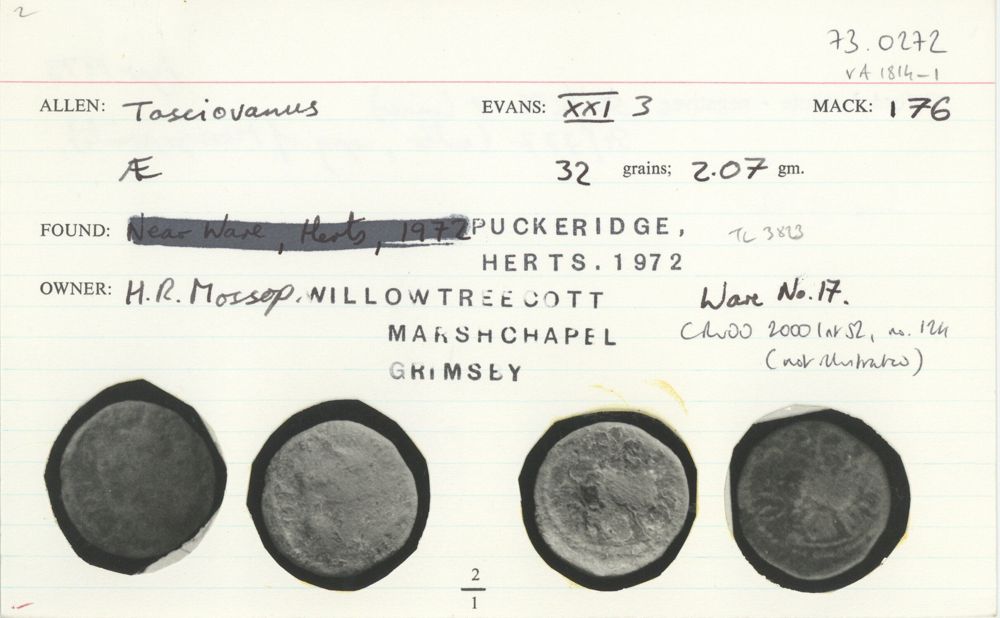 2
73.0272
VA 1814-1
ALLEN: Tasciovanus EVANS: XXI 3 MACK: 176
Æ 32 grains; 2.07 gm.
FOUND: Near Ware, Herts, 1972 PUCKERIDGE, TL 3823
HERTS. 1972
OWNER: H.R. Mossop. WILLOWTREE COTT Ware No. 17.
MARSHCHAPEL 2000 no. 124
GRIMSBY (not illustrated)
2
1